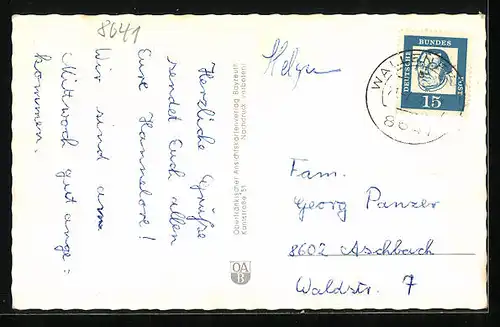 8641
Herzliche Grüße
sendet Euch allen
Eure Hannelore!
Wir sind am
Mittwoch gut ange=
kommen.
Oberfränkischer Ansichtskartenverlag Bayreuth
Kanalstraße 51 Nachdruck verboten!
OA
B
DEUTSCHE
BUNDES
POST
15
8641
Fam.
Georg Panzer
8602 Aschbach
Waldstr. 7